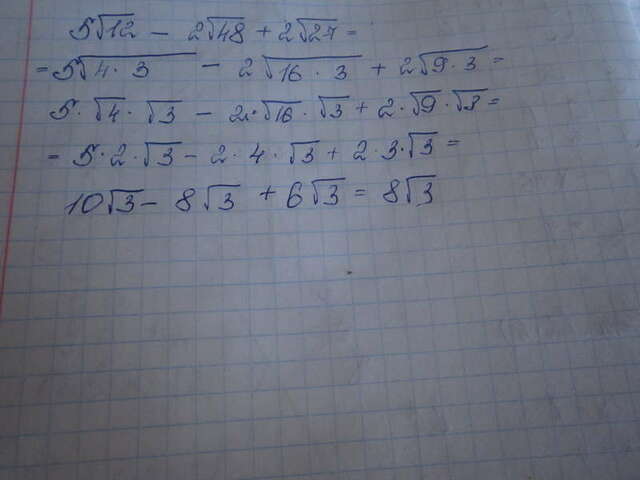 5√12 - 2√48 + 2√27 =
= 5√4·3 - 2√16·3 + 2√9·3 =
5·√4·√3 - 2·√16·√3 + 2·√9·√3 =
= 5·2·√3 - 2·4·√3 + 2·3·√3 =
10√3 - 8√3 + 6√3 = 8√3